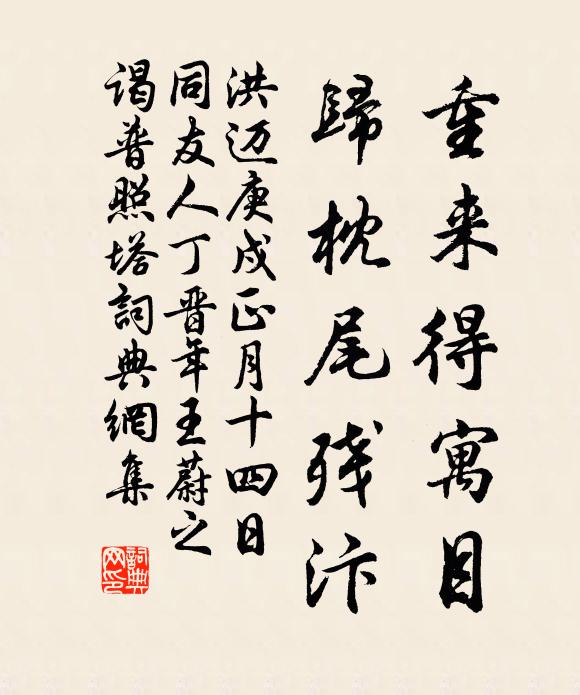 重来得寓目
歸枕尾残汴
洪迈庚戌正月十四日
同友人丁晋年王蔚之
谒普照塔詞典網集
詞典网印